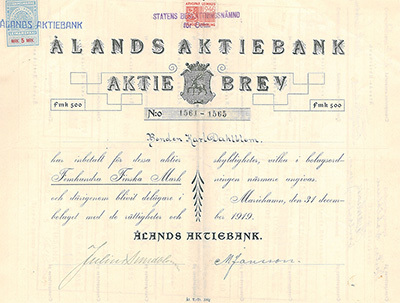 STATENS
ÅLANDS AKTIEBANK
ÅLANDS AKTIEBANK
AKTIE BREV
Fmk 500
Fmk 500
N:o 1561 - 1565
Bonden Karl Dahlblom.
har inbetalt för dessa aktier
Femhundra Finska Mark
och därigenom blivit delägare i
bolaget med de rättigheter och
skyldigheter, vilka i bolagsord-
ningen närmare angivas.
Mariehamn, den 31 decem-
ber 1919.
ÅLANDS AKTIEBANK.
Julius Sundblom
M Jansson.